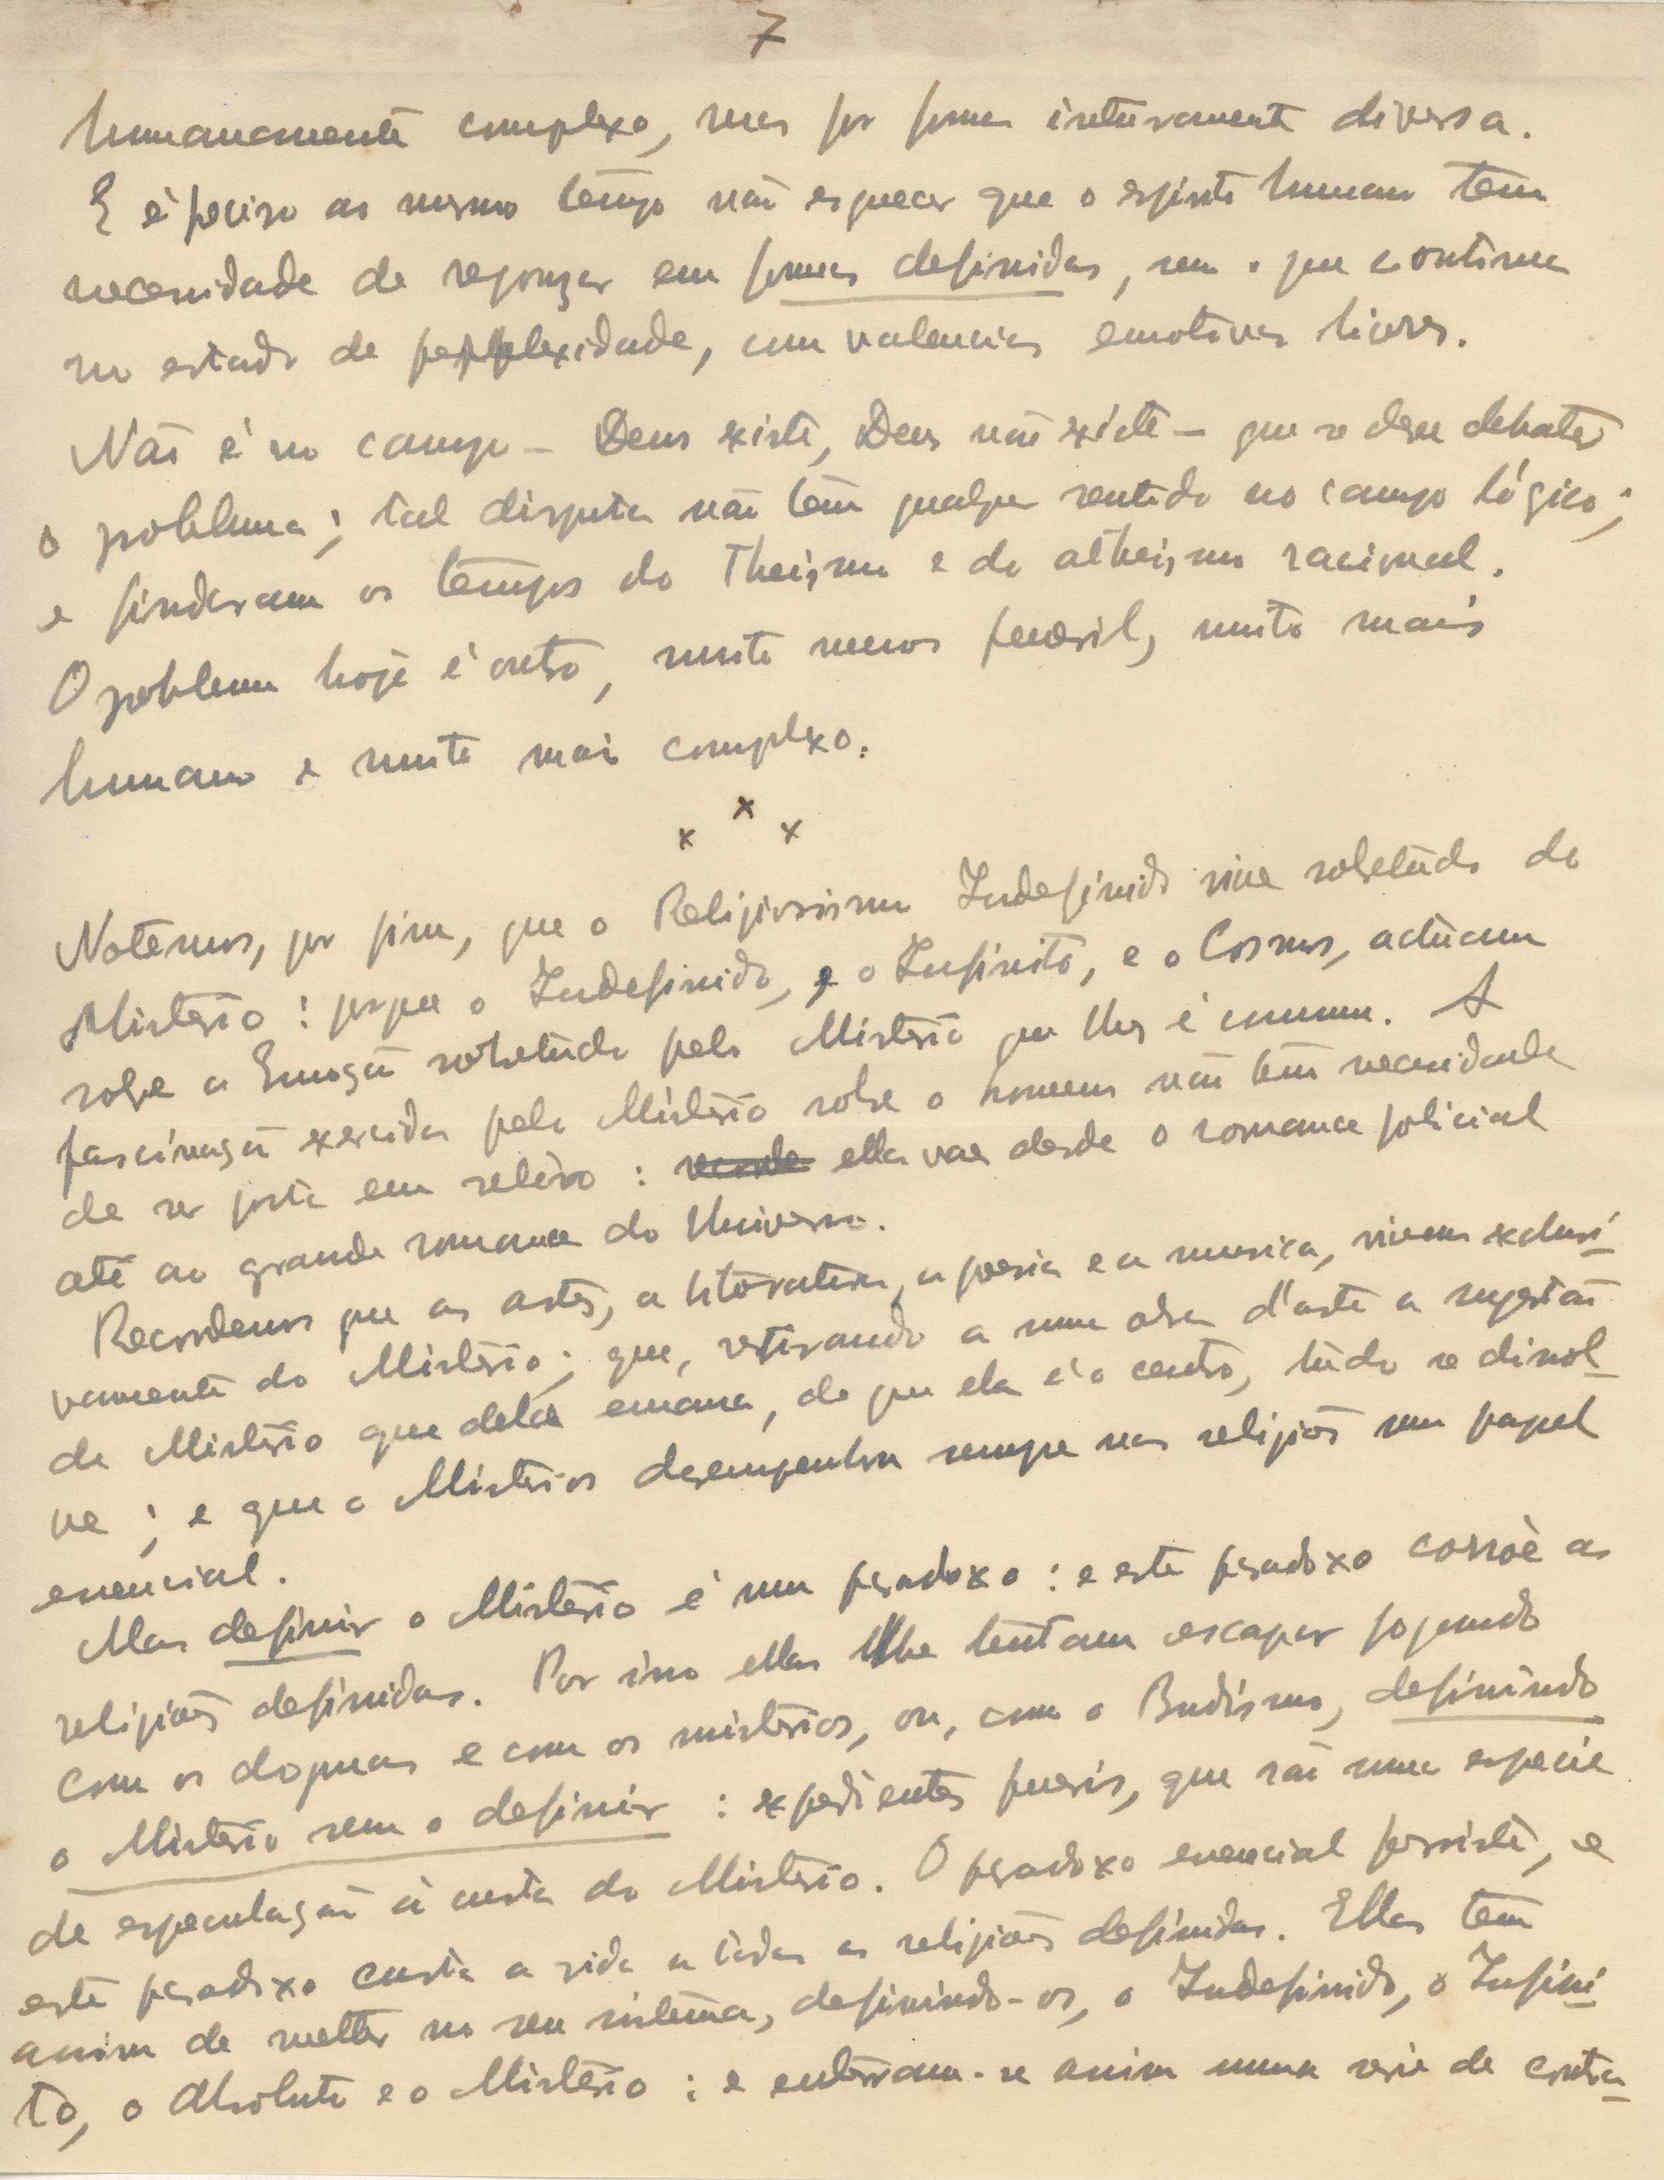 7
humanamente complexo, mas por forma inteiramente diversa.
E é preciso ao mesmo tempo não esquecer que o espirito humano tem
necessidade de repousar em formas definidas, sem o que continua
no estado de perplexidade, com valencias emotivas livres.
Não é no campo – Deus existe, Deus não existe – que se deve debater
o problema; tal disputa não têm qualquer sentido no campo lógico;
e findaram os tempos do Theismo e do atheismo racional.
O problema hoje é outro, muito menos pueril, muito mais
humano e muito mais complexo.
x x x
Notêmos, por fim, que o Religiosismo Indefinido vive sobretudo do
Mistério: porque o Indefinido, e o Infinito, e o Cosmos, actúam
sobre a Emoção sobretúdo pelo Mistério que lhes é comum. A
fascinação exercida pelo Mistério sobre o homem não têm necessidade
de ser posta em relêvo: ella vae desde o romance policial
até ao grande romance do Universo.
Recordemos que as artes, a literatura, a poesia e a musica, vivem exclusi-
vamente do Mistério; que, retirando a uma obra d'arte a sugestão
de Mistério que dela emana, de que ela é o centro, túdo se dissol-
ve; e que o Mistérios desempenha sempre nas religiões um papel
essencial.
Mas definir o Mistério é um paradoxo: e este paradoxo corróe as
religiões definidas. Por isso ellas lhe tentam escapar jogando
com os dogmas e com os mistérios, ou, como o Budismo, definindo
o Mistério sem o definir: expedientes pueris, que são uma especie
de especulação á custa do Mistério. O paradoxo essencial persiste, e
este paradoxo custa a vida a todas as religiões definidas. Ellas têm
assim de metter no seu sistêma, definindo-os, o Indefinido, o Infini-
to, o Absoluto e o Mistério: e entérram-se assim numa serie de contra-